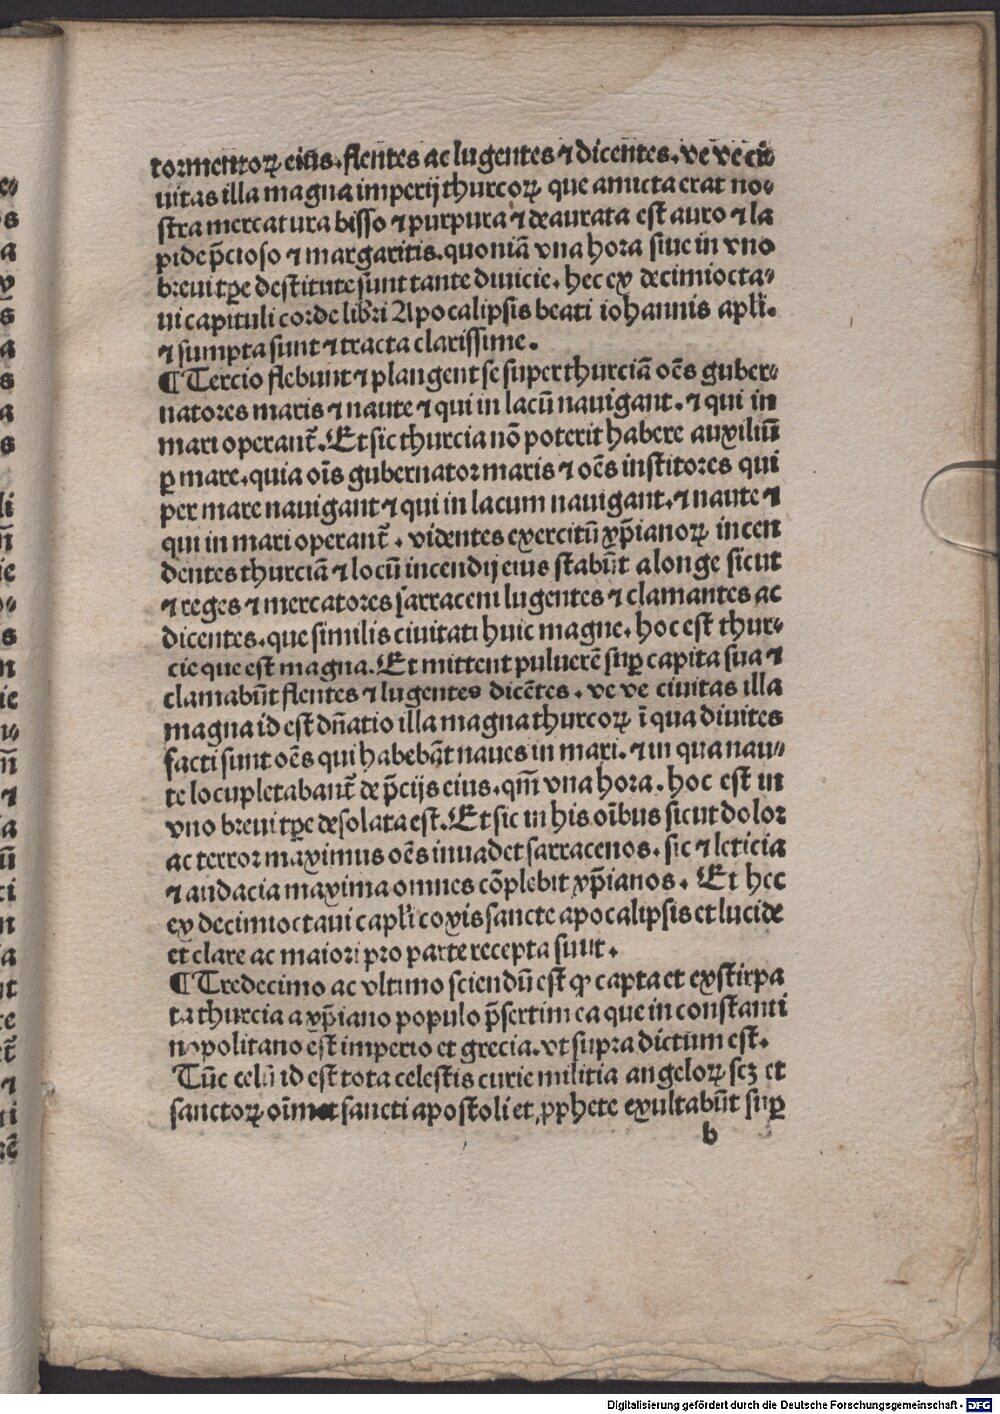 tormentoꝝ eius. flentes ac lugentes ⁊ dicentes. ve ve ci-
uitas illa magna imperij thurcoꝝ que amicta erat no-
stra mercatura bisso ⁊ purpura ⁊ deaurata est auro ⁊ la
pide p̄cioso ⁊ margaritis. quoniā vna hora siue in vno
breui tꝑe destitute sunt tante diuicie. hec ex decimiocta-
ui capituli corde libri Apocalipsis beati iohannis apl̄i.
⁊ sumpta sunt ⁊ tracta clarissime.
¶ Tercio flebunt ⁊ plangent se super thurciā oēs guber-
natores maris ⁊ naute ⁊ qui in lacū nauigant. ⁊ qui in
mari operant̄. Et sic thurcia nō poterit habere auxiliū
ꝑ mare. quia oīs gubernator maris ⁊ oēs institores qui
per mare nauigant ⁊ qui in lacum nauigant. ⁊ naute ⁊
qui in mari operant̄. videntes exercitū xp̄ianoꝝ incen
dentes thurciā ⁊ locū incendij eius stabūt a longe sicut
⁊ reges ⁊ mercatores sarraceni lugentes ⁊ clamantes ac
dicentes. que similis ciuitati huic magne. hoc est thur-
cie que est magna. Et mittent puluerē suꝑ capita sua ⁊
clamabūt flentes ⁊ lugentes dicētes. ve ve ciuitas illa
magna id est dn̄atio illa magna thurcoꝝ ī qua diuites
facti sunt oēs qui habebāt naues in mari. ⁊ in qua nau-
te locupletabant̄ de p̄cijs eius. qm̄ vna hora. hoc est in
vno breui tꝑe desolata est. Et sic in his oībus sicut dolor
ac terror maximus oēs inuadet sarracenos. sic ⁊ leticia
⁊ audacia maxima omnes cōplebit xp̄ianos. Et hec
ex decimioctaui capl̄i coxis sancte apocalipsis et lucide
et clare ac maiori pro parte recepta sunt.
¶ Tredecimo ac vltimo sciendū est ꝙ capta et exstirpa
ta thurcia a xp̄iano populo p̄sertim ea que in constanti
nopolitano est imperio et grecia. vt supra dictum est.
Tūc celū id est tota celestis curie militia angeloꝝ scꝫ et
sanctoꝝ oīm et sancti apostoli et ꝓphete exultabūt suꝑ
b
Digitalisierung gefördert durch die Deutsche Forschungsgemeinschaft - DFG